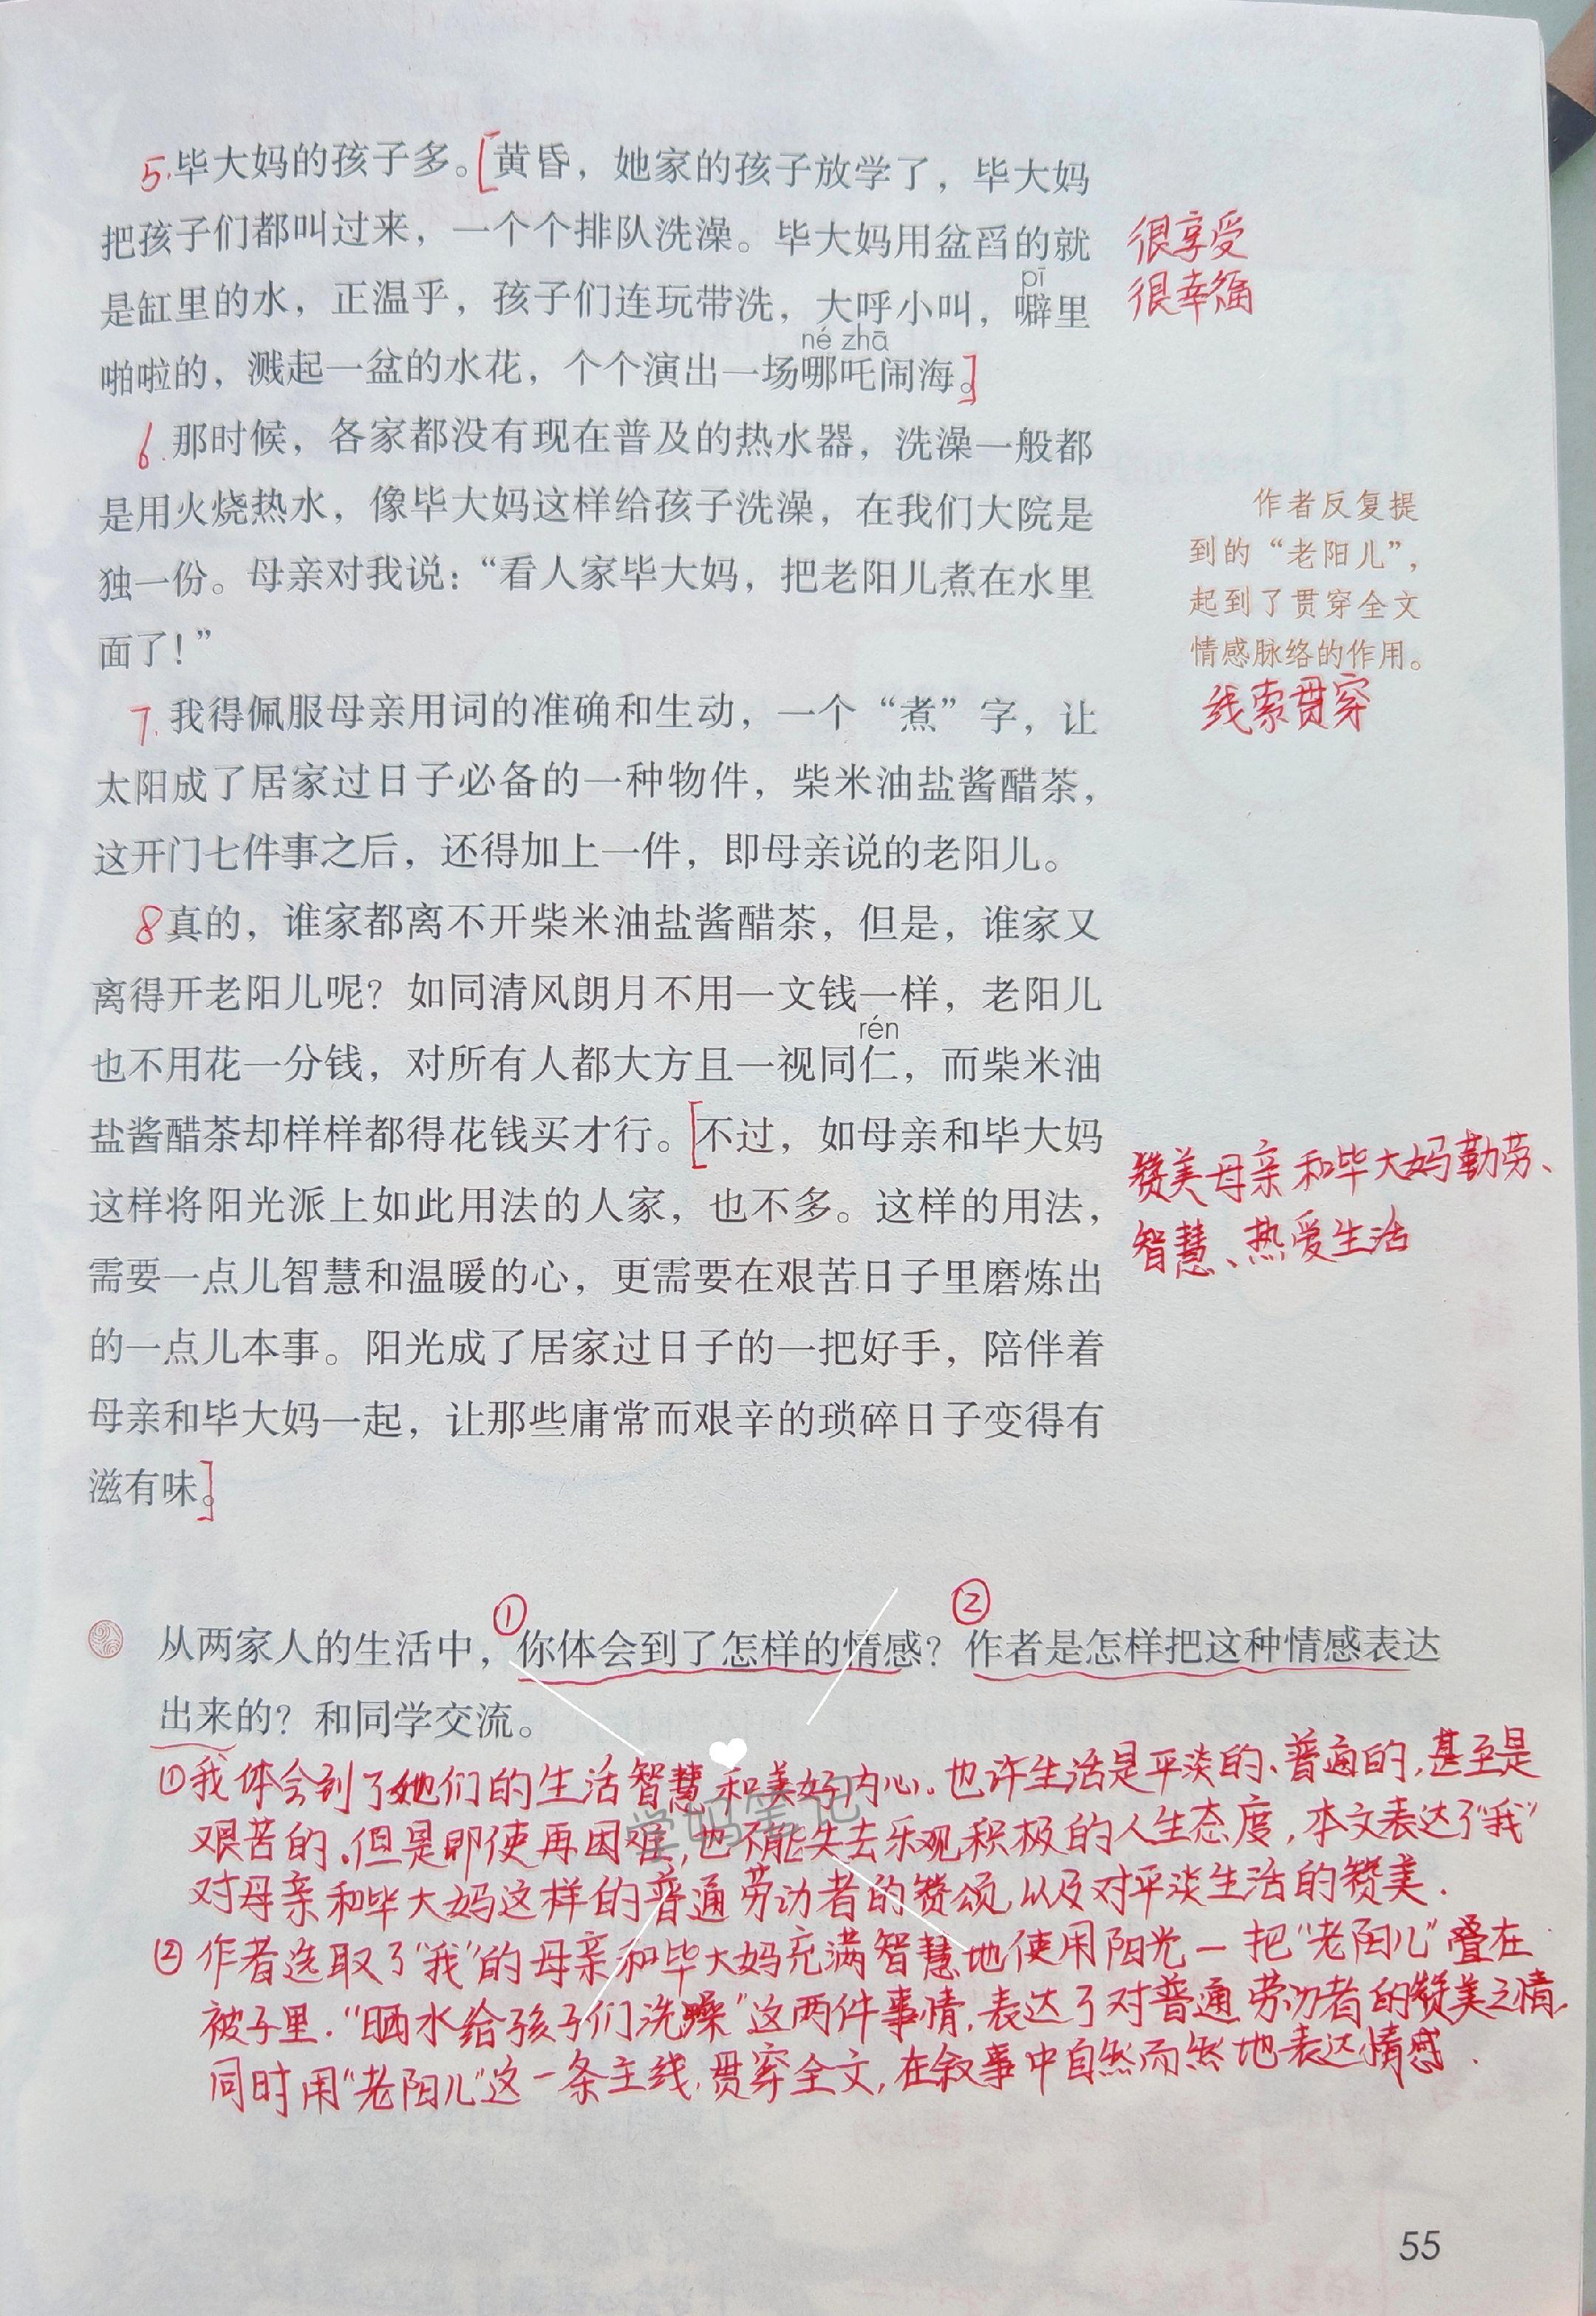 5.毕大妈的孩子多。[黄昏，她家的孩子放学了，毕大妈
把孩子们都叫过来，一个个排队洗澡。毕大妈用盆舀的就
很享受
pī
是缸里的水，正温乎，孩子们连玩带洗，大呼小叫，噼里
很幸福
né zhā
啪啦的，溅起一盆的水花，个个演出一场哪吒闹海。]
6.那时候，各家都没有现在普及的热水器，洗澡一般都
是用火烧热水，像毕大妈这样给孩子洗澡，在我们大院是
独一份。母亲对我说：“看人家毕大妈，把老阳儿煮在水里
面了！”
作者反复提
到的“老阳儿”，
起到了贯穿全文
情感脉络的作用。
线索贯穿
7.我得佩服母亲用词的准确和生动，一个“煮”字，让
太阳成了居家过日子必备的一种物件，柴米油盐酱醋茶，
这开门七件事之后，还得加上一件，即母亲说的老阳儿。
8真的，谁家都离不开柴米油盐酱醋茶，但是，谁家又
离得开老阳儿呢？如同清风朗月不用一文钱一样，老阳儿
rén
也不用花一分钱，对所有人都大方且一视同仁，而柴米油
盐酱醋茶却样样都得花钱买才行。[不过，如母亲和毕大妈
这样将阳光派上如此用法的人家，也不多。这样的用法，
需要一点儿智慧和温暖的心，更需要在艰苦日子里磨炼出
的一点儿本事。阳光成了居家过日子的一把好手，陪伴着
母亲和毕大妈一起，让那些庸常而艰辛的琐碎日子变得有
滋有味。]
赞美母亲和毕大妈勤劳、
智慧、热爱生活
① ②
从两家人的生活中，你体会到了怎样的情感？作者是怎样把这种情感表达
出来的？和同学交流。
①我体会到了她们的生活智慧和美好内心。也许生活是平淡的、普通的，甚至是
艰苦的，但是即使再困难，也不能失去乐观积极的人生态度，本文表达了“我”
对母亲和毕大妈这样的普通劳动者的赞颂，以及对平淡生活的赞美．
②作者选取了“我”的母亲和毕大妈充满智慧地使用阳光—把“老阳儿”叠在
被子里．“晒水给孩子们洗澡”这两件事情，表达了对普通劳动者的赞美之情，
同时用“老阳儿”这一条主线，贯穿全文，在叙事中自然而然地表达情感．
学妈笔记
55